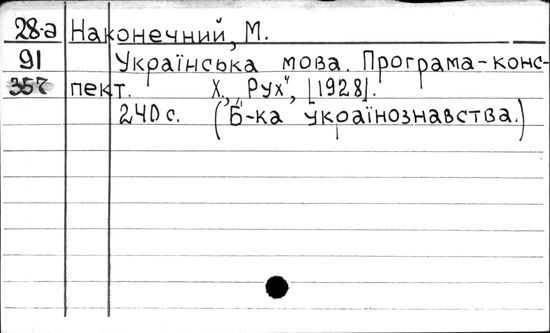 28-а Наконечний, М.
91 Українська мова. Програма-конс-
357 пект. Х., "Рух", [1928].
240 с. (Б-ка українознавства.)